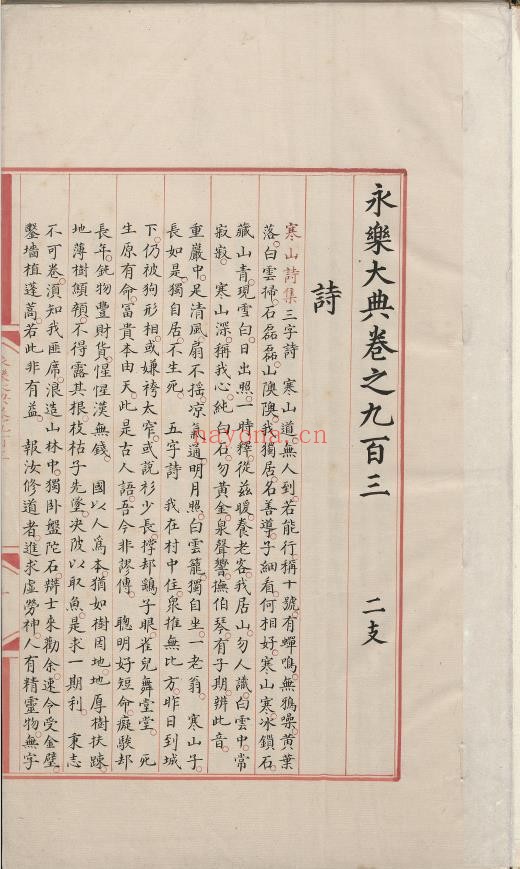 永樂大典卷之九百三 二支
詩
寒山詩集三字詩 寒山道無人到若能行稱十號有蟬鳴無鵶噪黃葉
落白雲掃石磊磊山隩隩我獨居名善導子細看何相好寒山寒冰鎖石
藏山青現雪白日出照一時釋從茲暖養老客我居山勿人識白雲中常
寂寂 寒山深稱我心純白石勿黃金泉聲響撫伯琴有子期辨此音
重巖中足清風扇不搖凉氣通明月照白雲籠獨自坐一老翁 寒山子
長如是獨自居不生死 五字詩 我在村中住衆推無比方昨日到城
下仍被狗形相或嫌袴太窄或說衫少長撑却鷂子眼雀兒舞堂堂 死
生原有命冨貴本由天此是古人語吾今非謬傳 聰明好短命癡騃却
長年鈍物豐財貨惺惺漢無錢 國以人爲本猶如樹因地地厚樹扶踈
地薄樹傾頓不得露其根枝枯子先墜决陂以取魚是求一期利 秉志
不可卷湏知我匪席浪造山林中獨卧盤陀石辯士來勸余速令受金璧
鑿墻植蓬蒿若此非有益 報汝修道者進求虛勞神人有精靈物無字
nayona.cn